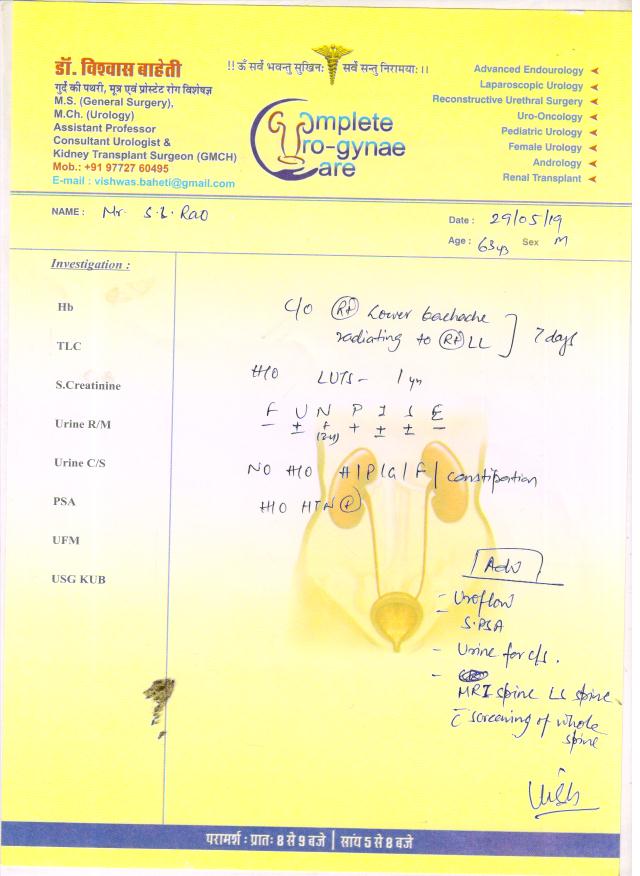 !! ॐ सर्वे भवन्तु सुखिनः सर्वे सन्तु निरामयाः ।।
डॉ. विश्वास बाहेती
गुर्दे की पथरी, मूत्र एवं प्रोस्टेट रोग विशेषज्ञ
M.S. (General Surgery),
M.Ch. (Urology)
Assistant Professor
Consultant Urologist &
Kidney Transplant Surgeon (GMCH)
Mob.: +91 97727 60495
E-mail : vishwas.baheti@gmail.com
Complete
Uro-gynae
Care
Advanced Endourology
Laparoscopic Urology
Reconstructive Urethral Surgery
Uro-Oncology
Pediatric Urology
Female Urology
Andrology
Renal Transplant
NAME : Mr. S.L. Rao
Date : 29/05/19
Age : 63 yrs Sex M
Investigation :
Hb
TLC
S.Creatinine
Urine R/M
Urine C/S
PSA
UFM
USG KUB
C/O Rt Lower backache
radiating to Rt LL ] 7 days
H/O LUTS - 1 yr
F U N P I S E
- ± + + ± ± -
NO H/O H/P/G/F/ constipation
H/O HTN (+)
Adv
- Uroflow
S.PSA
- Urine for c/s.
- MRI spine LS spine
c̄ screening of whole
spine
परामर्श : प्रातः 8 से 9 बजे | सांय 5 से 8 बजे